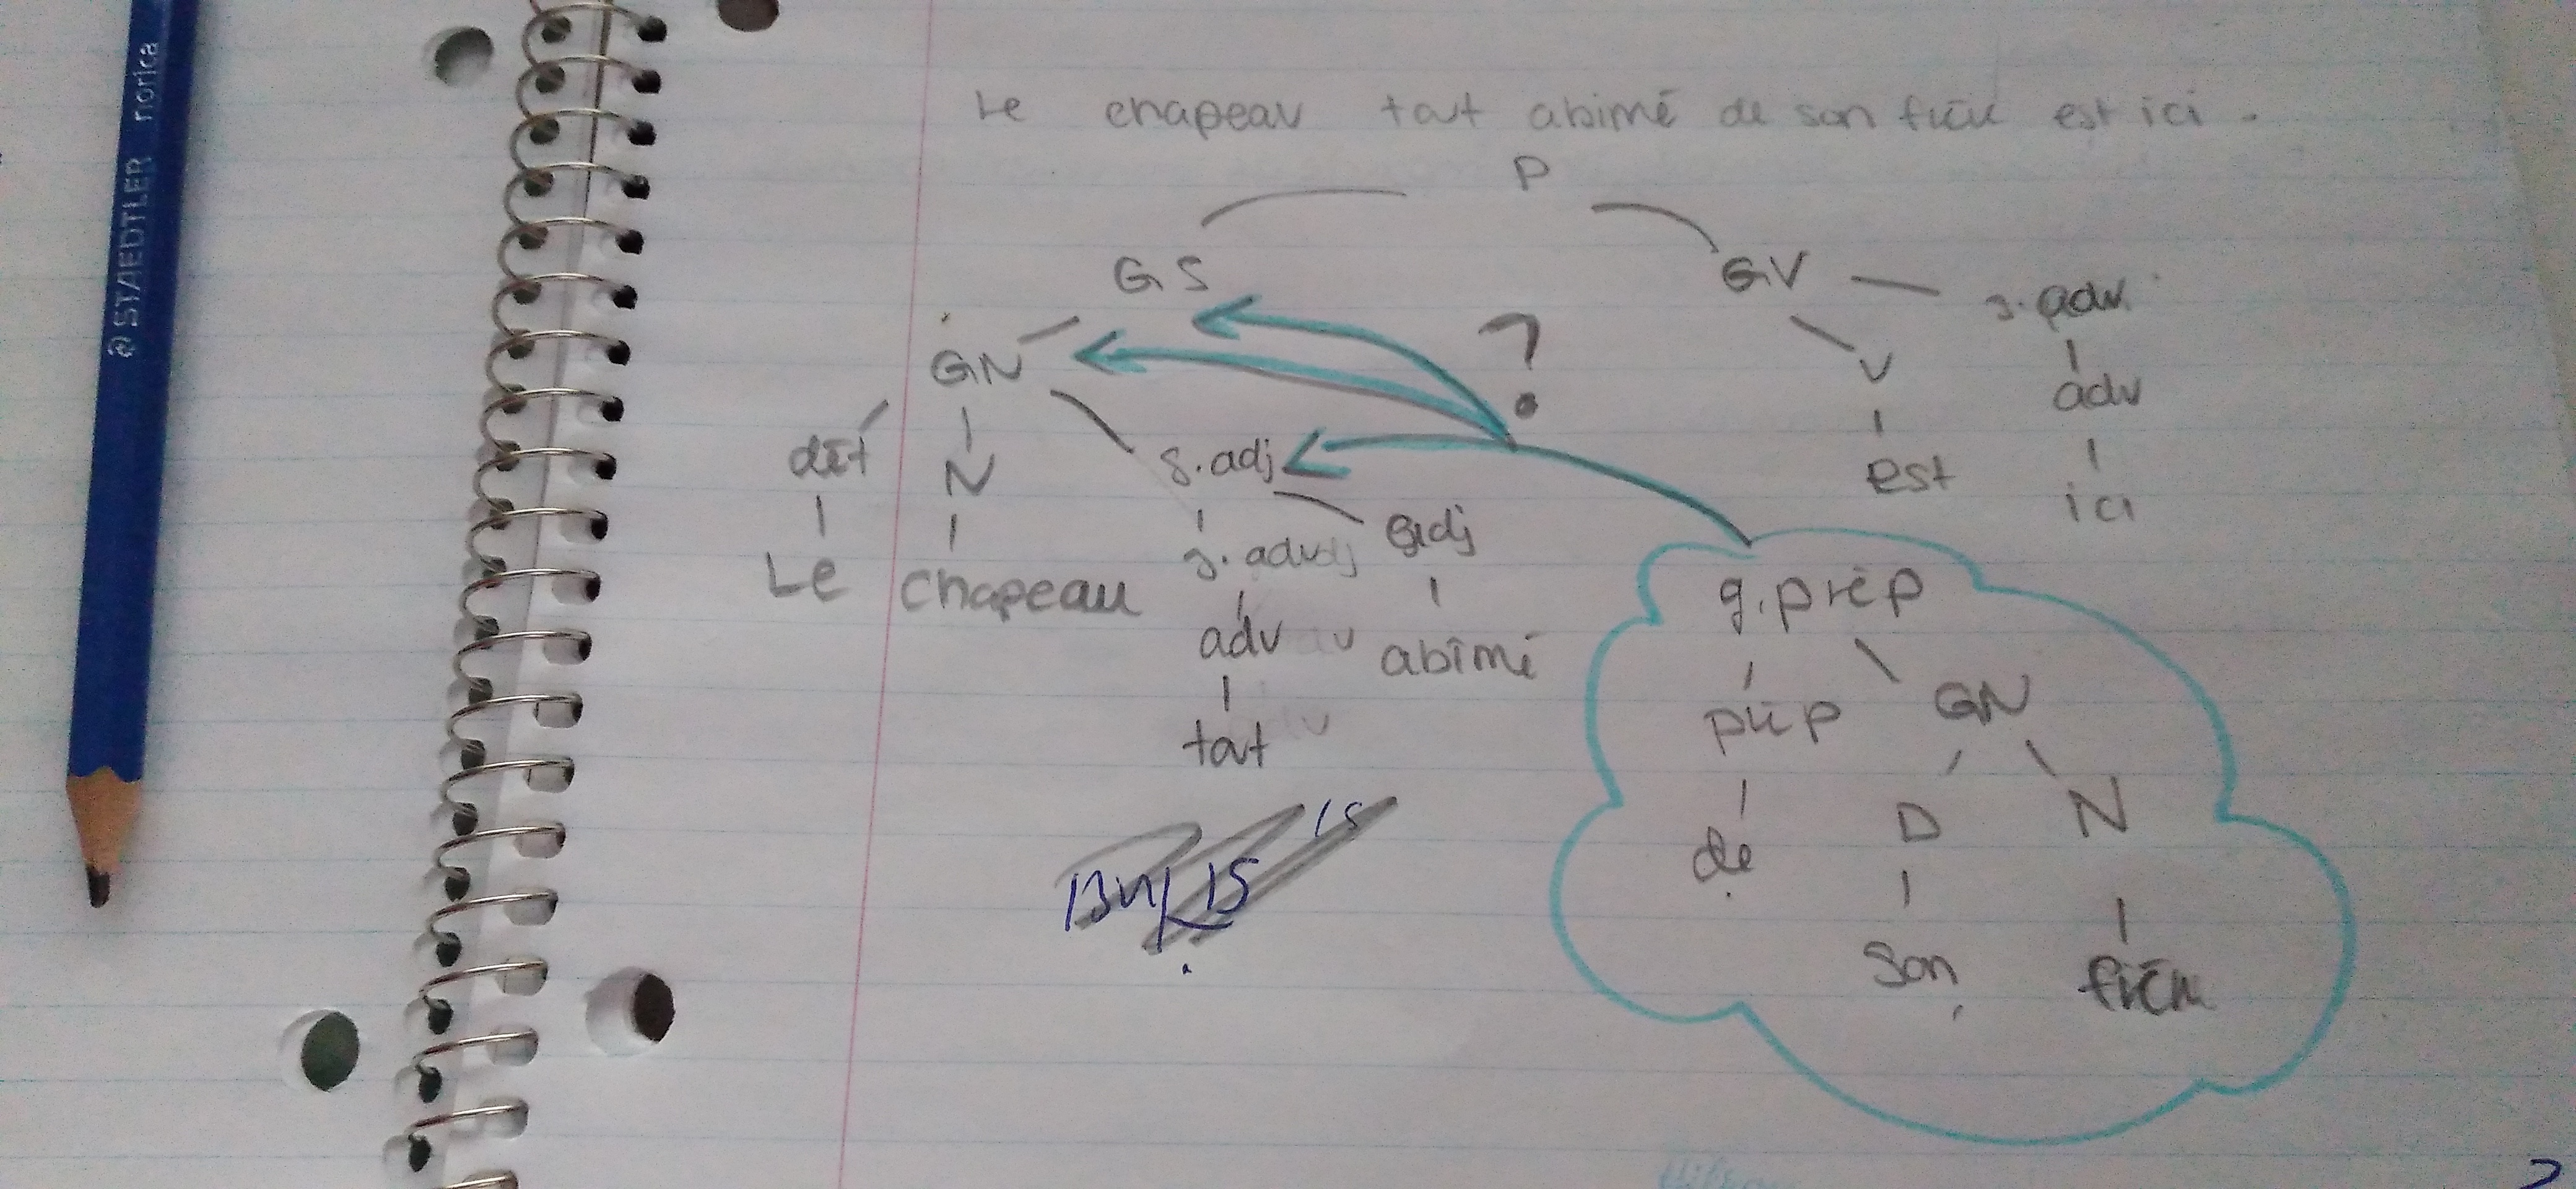 STAEDTLER norica
Le chapeau tout abimé de son frère est ici.
P
GS GV g.adv.
GN ? V adv
dét N g.adj est ici
Le chapeau g.adv adj
adv abîmé
tout
g.prép
prép GN
de D N
son frère